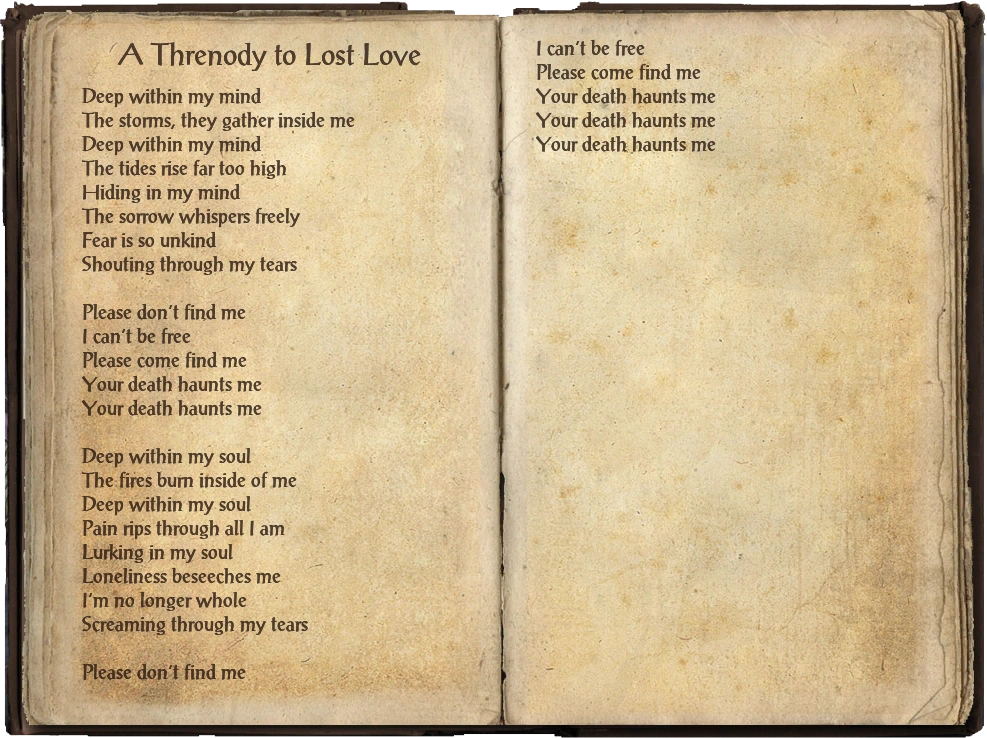 A Threnody to Lost Love
Deep within my mind
The storms, they gather inside me
Deep within my mind
The tides rise far too high
Hiding in my mind
The sorrow whispers freely
Fear is so unkind
Shouting through my tears

Please don't find me
I can't be free
Please come find me
Your death haunts me
Your death haunts me

Deep within my soul
The fires burn inside of me
Deep within my soul
Pain rips through all I am
Lurking in my soul
Loneliness beseeches me
I'm no longer whole
Screaming through my tears

Please don't find me
I can't be free
Please come find me
Your death haunts me
Your death haunts me
Your death haunts me